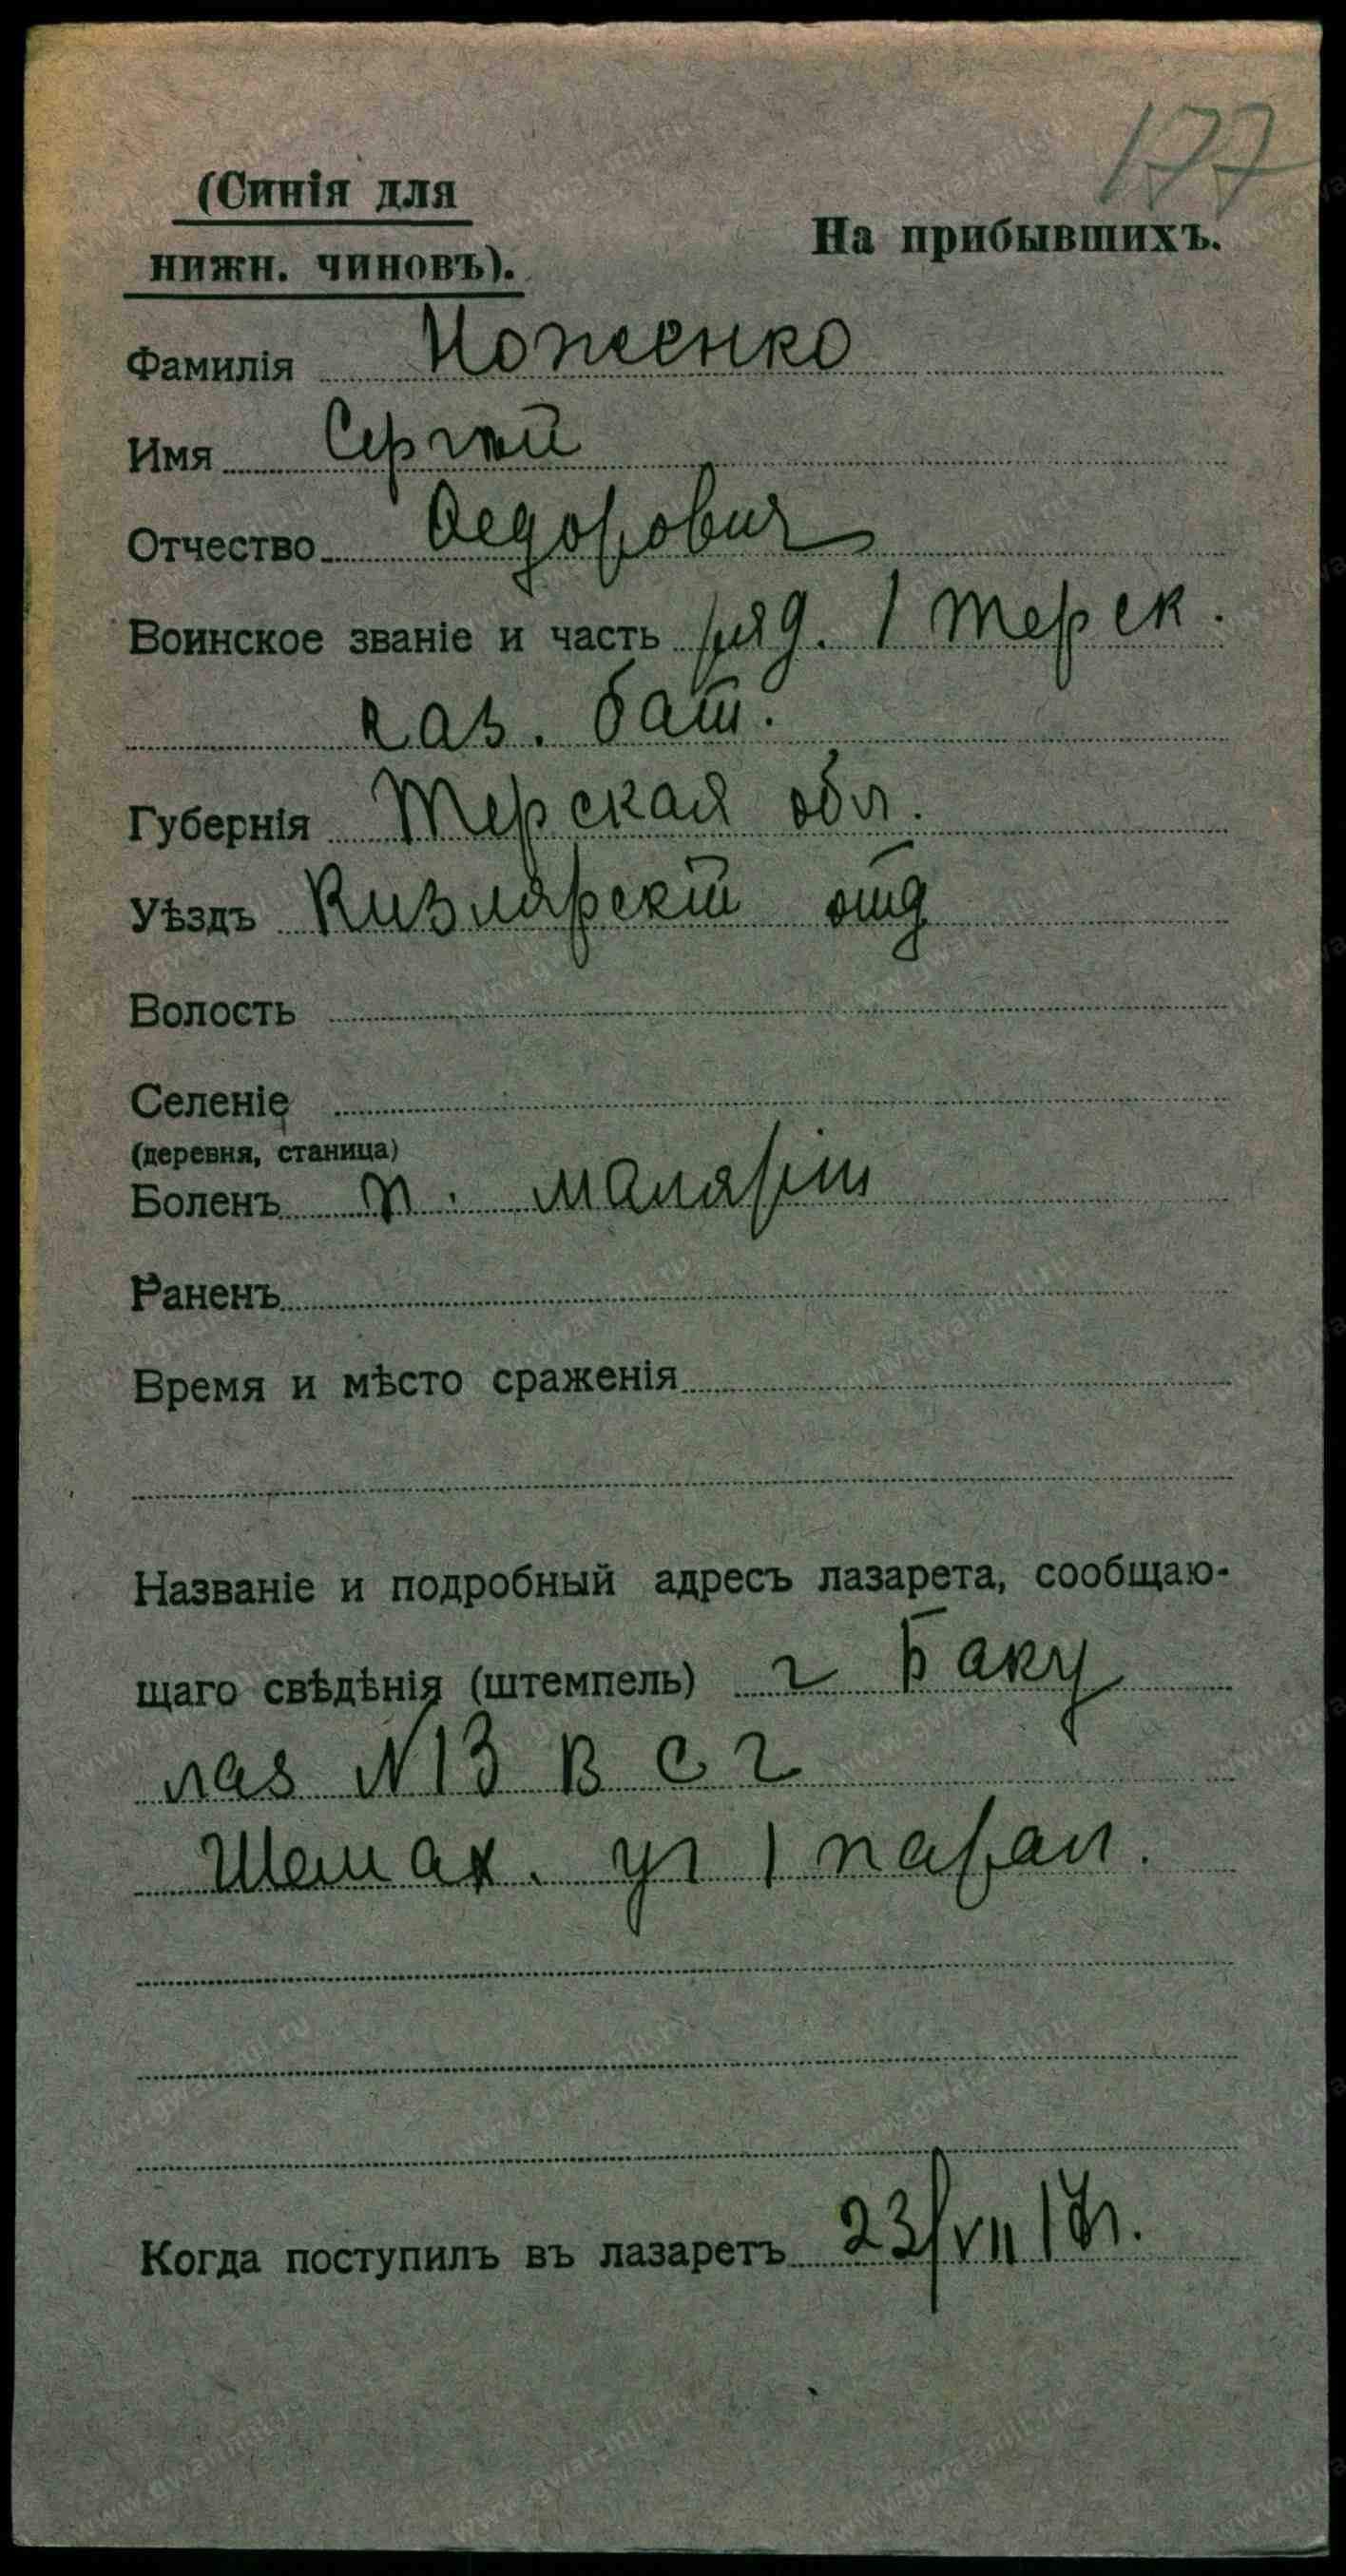 177
(Синія для
нижн. чиновъ).
На прибывшихъ.
Фамилія Ноженко
Имя Сергѣй
Отчество Ѳедорович
Воинское званіе и часть ряд. 1 Терск.
каз. бат.
Губернія Терская обл.
Уѣздъ Кизлярскій отд
Волость
Селеніе
(деревня, станица)
Боленъ п. малярій
Раненъ
Время и мѣсто сраженія
Названіе и подробный адресъ лазарета, сообщаю-
щаго свѣдѣнія (штемпель) г Баку
лаз №13 В С Г
Шемах. ул 1 парал.
Когда поступилъ въ лазаретъ 23/VII 17г.